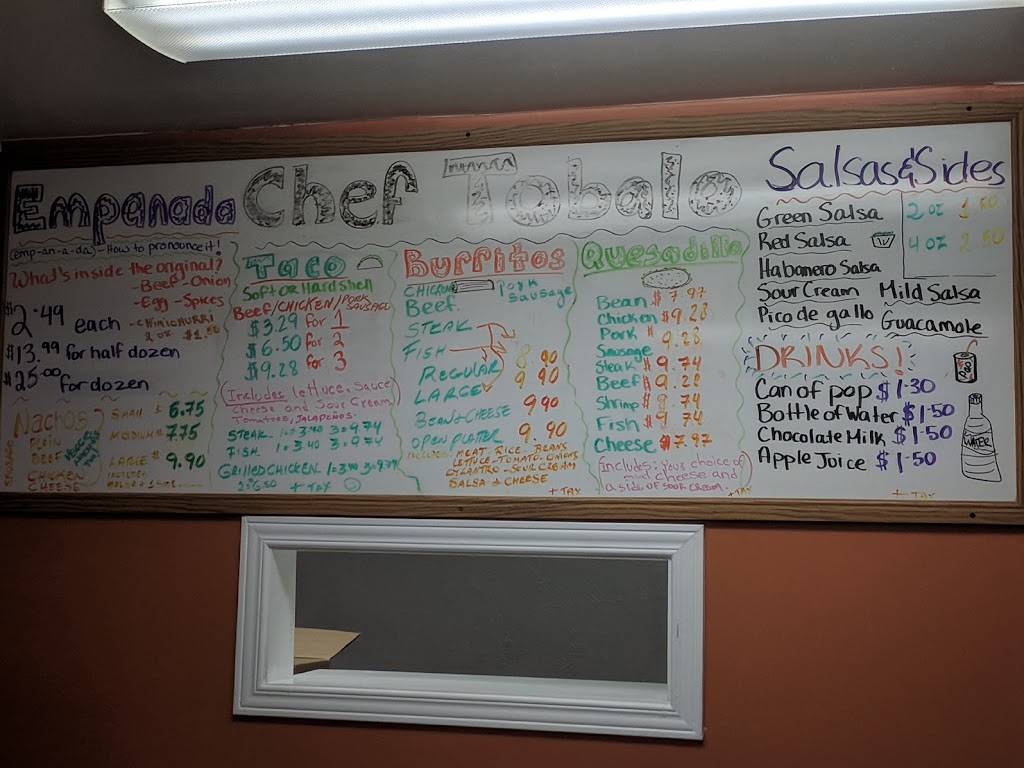 Chef Tobalo
Empanada
(emp-an-a-da)-How to pronounce it!
What's inside the original?
-Beef-Onion
-Egg-Spices
-CHIMICHURRI
2 oz $1.50
$2.49 each
$13.99 for half dozen
$25.00 for dozen
Nachos
PLAIN
BEEF
CHICKEN
CHEESE
SMALL $ 6.75
MEDIUM $ 7.75
LARGE $ 9.90
Taco
Soft or Hard shell
Beef/CHICKEN/PORK SAUSAGE
$3.29 for 1
$6.50 for 2
$9.28 for 3
Includes lettuce, Sauce
Cheese and Sour Cream
Tomatoes, JALAPEÑOS.
STEAK 1=3.40 3=9.74
FISH. 1=3.40 3=9.74
GRILLED CHICKEN 1=3.40 3=9.74
2=6.50 + TAX
Burritos
CHICKEN
Pork Sausage
Beef.
STEAK
FISH
REGULAR 8.90
LARGE 9.90
BEAN & CHEESE 9.90
OPEN PLATER 9.90
INCLUDES: MEAT. RICE. BEANS
LETTUCE-TOMATO-ONIONS
CILANTRO-SOUR CREAM
SALSA & CHEESE
+ TAX
Quesadilla
Bean $7.97
Chicken $9.28
Pork Sausage $ 9.28
Steak $ 9.74
Beef $ 9.28
Shrimp $9.74
Fish $ 9.74
Cheese $7.97
Includes: your choice of
meat cheese and
a side of sour cream.
+TAX
Salsas & Sides
Green Salsa
Red Salsa
2 oz 1.50
4 oz 2.50
Habanero Salsa
Sour Cream Mild Salsa
Pico de gallo Guacamole
DRINKS!
Can of pop $1.30
Bottle of Water $1.50
Chocolate Milk $1.50
Apple Juice $1.50
WATER
+ TAX